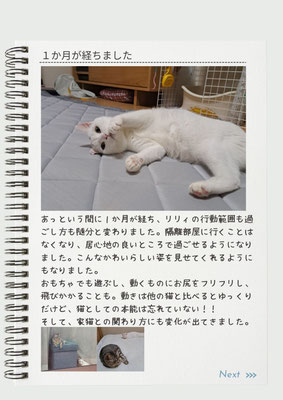 １か月が経ちました
あっという間に１か月が経ち、リリィの行動範囲も過
ごし方も随分と変わりました。隔離部屋に行くことは
なくなり、居心地の良いところで過ごせるようになり
ました。こんなかわいらしい姿を見せてくれるように
もなりました。
おもちゃでも遊ぶし、動くものにお尻をフリフリし、
飛びかかることも。動きは他の猫と比べるとゆっくり
だけど、猫としての本能は忘れていない！！
そして、家猫との関わり方にも変化が出てきました。
Next >>>